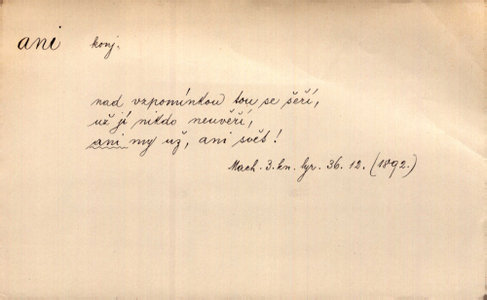 ani konj.
nad vzpomínkou tou se šeří,
už jí nikdo neuvěří,
ani my už, ani svět!
Mach. 3. kn. lyr. 36. 12. (1892.)